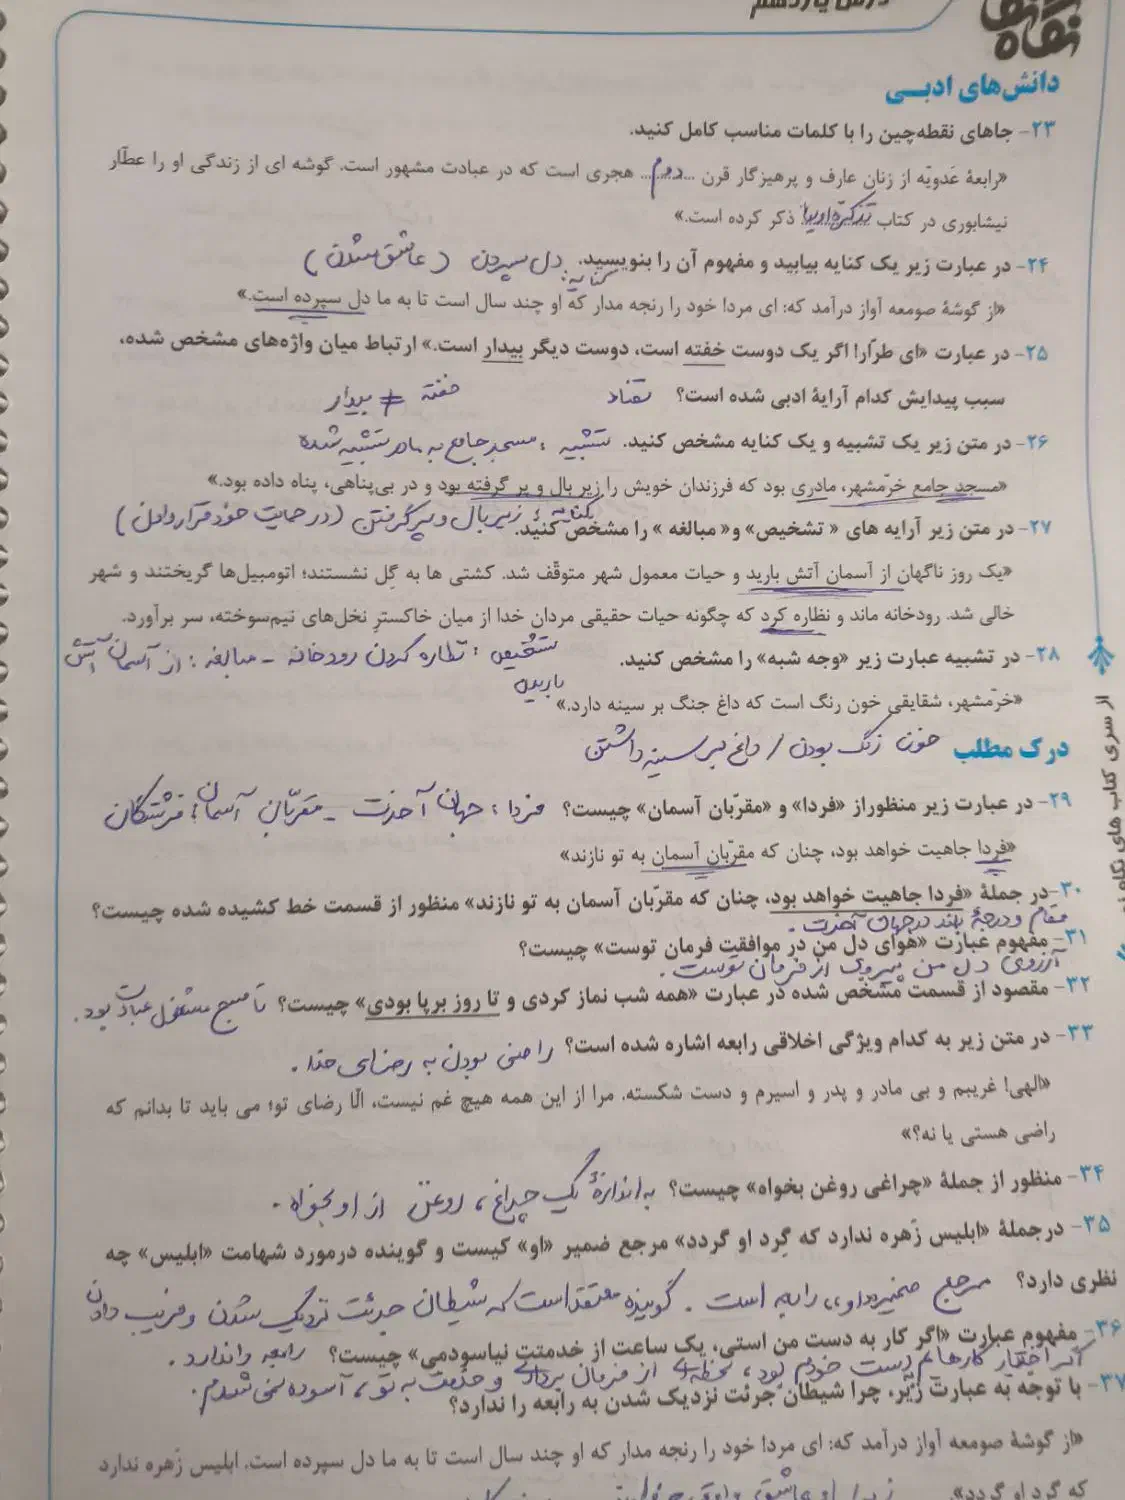 درس یازدهم
نگاه نو
دانش‌های ادبـی
۲۳- جاهای نقطه‌چین را با کلمات مناسب کامل کنید.
«رابعهٔ عَدَویّه از زنان عارف و پرهیزگار قرن ...دوم... هجری است که در عبادت مشهور است. گوشه ای از زندگی او را عطّار
نیشابوری در کتاب تذکرةاولیا ذکر کرده است.»
۲۴- در عبارت زیر یک کنایه بیابید و مفهوم آن را بنویسید. کنایه: دل سپردن (عاشق شدن)
«از گوشهٔ صومعه آواز درآمد که: ای مرد! خود را رنجه مدار که او چند سال است تا به ما دل سپرده است.»
۲۵- در عبارت «ای طرّار! اگر یک دوست خفته است، دوست دیگر بیدار است.» ارتباط میان واژه‌های مشخص شده،
سبب پیدایش کدام آرایهٔ ادبی شده است؟ تضاد خفته ≠ بیدار
۲۶- در متن زیر یک تشبیه و یک کنایه مشخص کنید. تشبیه: مسجد جامع به مادر تشبیه شده
«مسجد جامع خرّمشهر، مادری بود که فرزندان خویش را زیر بال و پر گرفته بود و در بی‌پناهی، پناه داده بود.»
کنایه: زیر بال و پر گرفتن (در حمایت خود قرار دادن)
۲۷- در متن زیر آرایه های « تشخیص» و« مبالغه » را مشخص کنید.
«یک روز ناگهان از آسمان آتش بارید و حیات معمول شهر متوقّف شد. کشتی ها به گِل نشستند؛ اتومبیل‌ها گریختند و شهر
خالی شد. رودخانه ماند و نظاره کرد که چگونه حیات حقیقی مردان خدا از میان خاکسترِ نخل‌های نیم‌سوخته، سر برآورد.
تشخیص: نظاره کردن رودخانه - مبالغه: از آسمان آتش
باریدن
۲۸- در تشبیه عبارت زیر «وجه شبه» را مشخص کنید.
«خرّمشهر، شقایقی خون رنگ است که داغ جنگ بر سینه دارد.»
خون رنگ بودن / داغ بر سینه داشتن
درک مطلب
۲۹- در عبارت زیر منظوراز «فردا» و «مقرّبان آسمان» چیست؟ فردا: جهان آخرت - مقرّبان آسمان: فرشتگان
«فردا جاهیت خواهد بود، چنان که مقرّبان آسمان به تو نازند»
۳۰- در جملهٔ «فردا جاهیت خواهد بود، چنان که مقرّبان آسمان به تو نازند» منظور از قسمت خط کشیده شده چیست؟
مقام و درجهٔ بلند در جهان آخرت.
۳۱- مفهوم عبارت «هوای دل من در موافقت فرمان توست» چیست؟
آرزوی دل من پیروی از فرمان توست.
۳۲- مقصود از قسمت مشخص شده در عبارت «همه شب نماز کردی و تا روز برپا بودی» چیست؟ تا صبح مشغول عبادت بود.
۳۳- در متن زیر به کدام ویژگی اخلاقی رابعه اشاره شده است؟ راضی بودن به رضای خدا.
«الهی! غریبم و بی مادر و پدر و اسیرم و دست شکسته. مرا از این همه هیچ غم نیست، الّا رضای تو؛ می باید تا بدانم که
راضی هستی یا نه؟»
۳۴- منظور از جملهٔ «چراغی روغن بخواه» چیست؟ به اندازهٔ یک چراغ، روغن از او بخواه.
۳۵- درجملهٔ «ابلیس زَهره ندارد که گِرد او گردد» مرجع ضمیر «او» کیست و گوینده درمورد شهامت «ابلیس» چه
نظری دارد؟ مرجع ضمیر «او» رابعه است. گوینده معتقد است که شیطان جرئت نزدیک شدن و فریب دادن
رابعه را ندارد.
۳۶- مفهوم عبارت «اگر کار به دست من استی، یک ساعت از خدمتت نیاسودمی» چیست؟
اگر اختیار کارها به دست خودم بود، لحظه‌ای از فرمان برداری و خدمت به تو، آسوده نمی شدم.
۳۷- با توجّه به عبارت زیر، چرا شیطان جرئت نزدیک شدن به رابعه را ندارد؟
«از گوشهٔ صومعه آواز درآمد که: ای مرد! خود را رنجه مدار که او چند سال است تا به ما دل سپرده است. ابلیس زَهره ندارد
که گرد او گردد».
زیرا او عاشق
از سری کتاب های نگاه نو